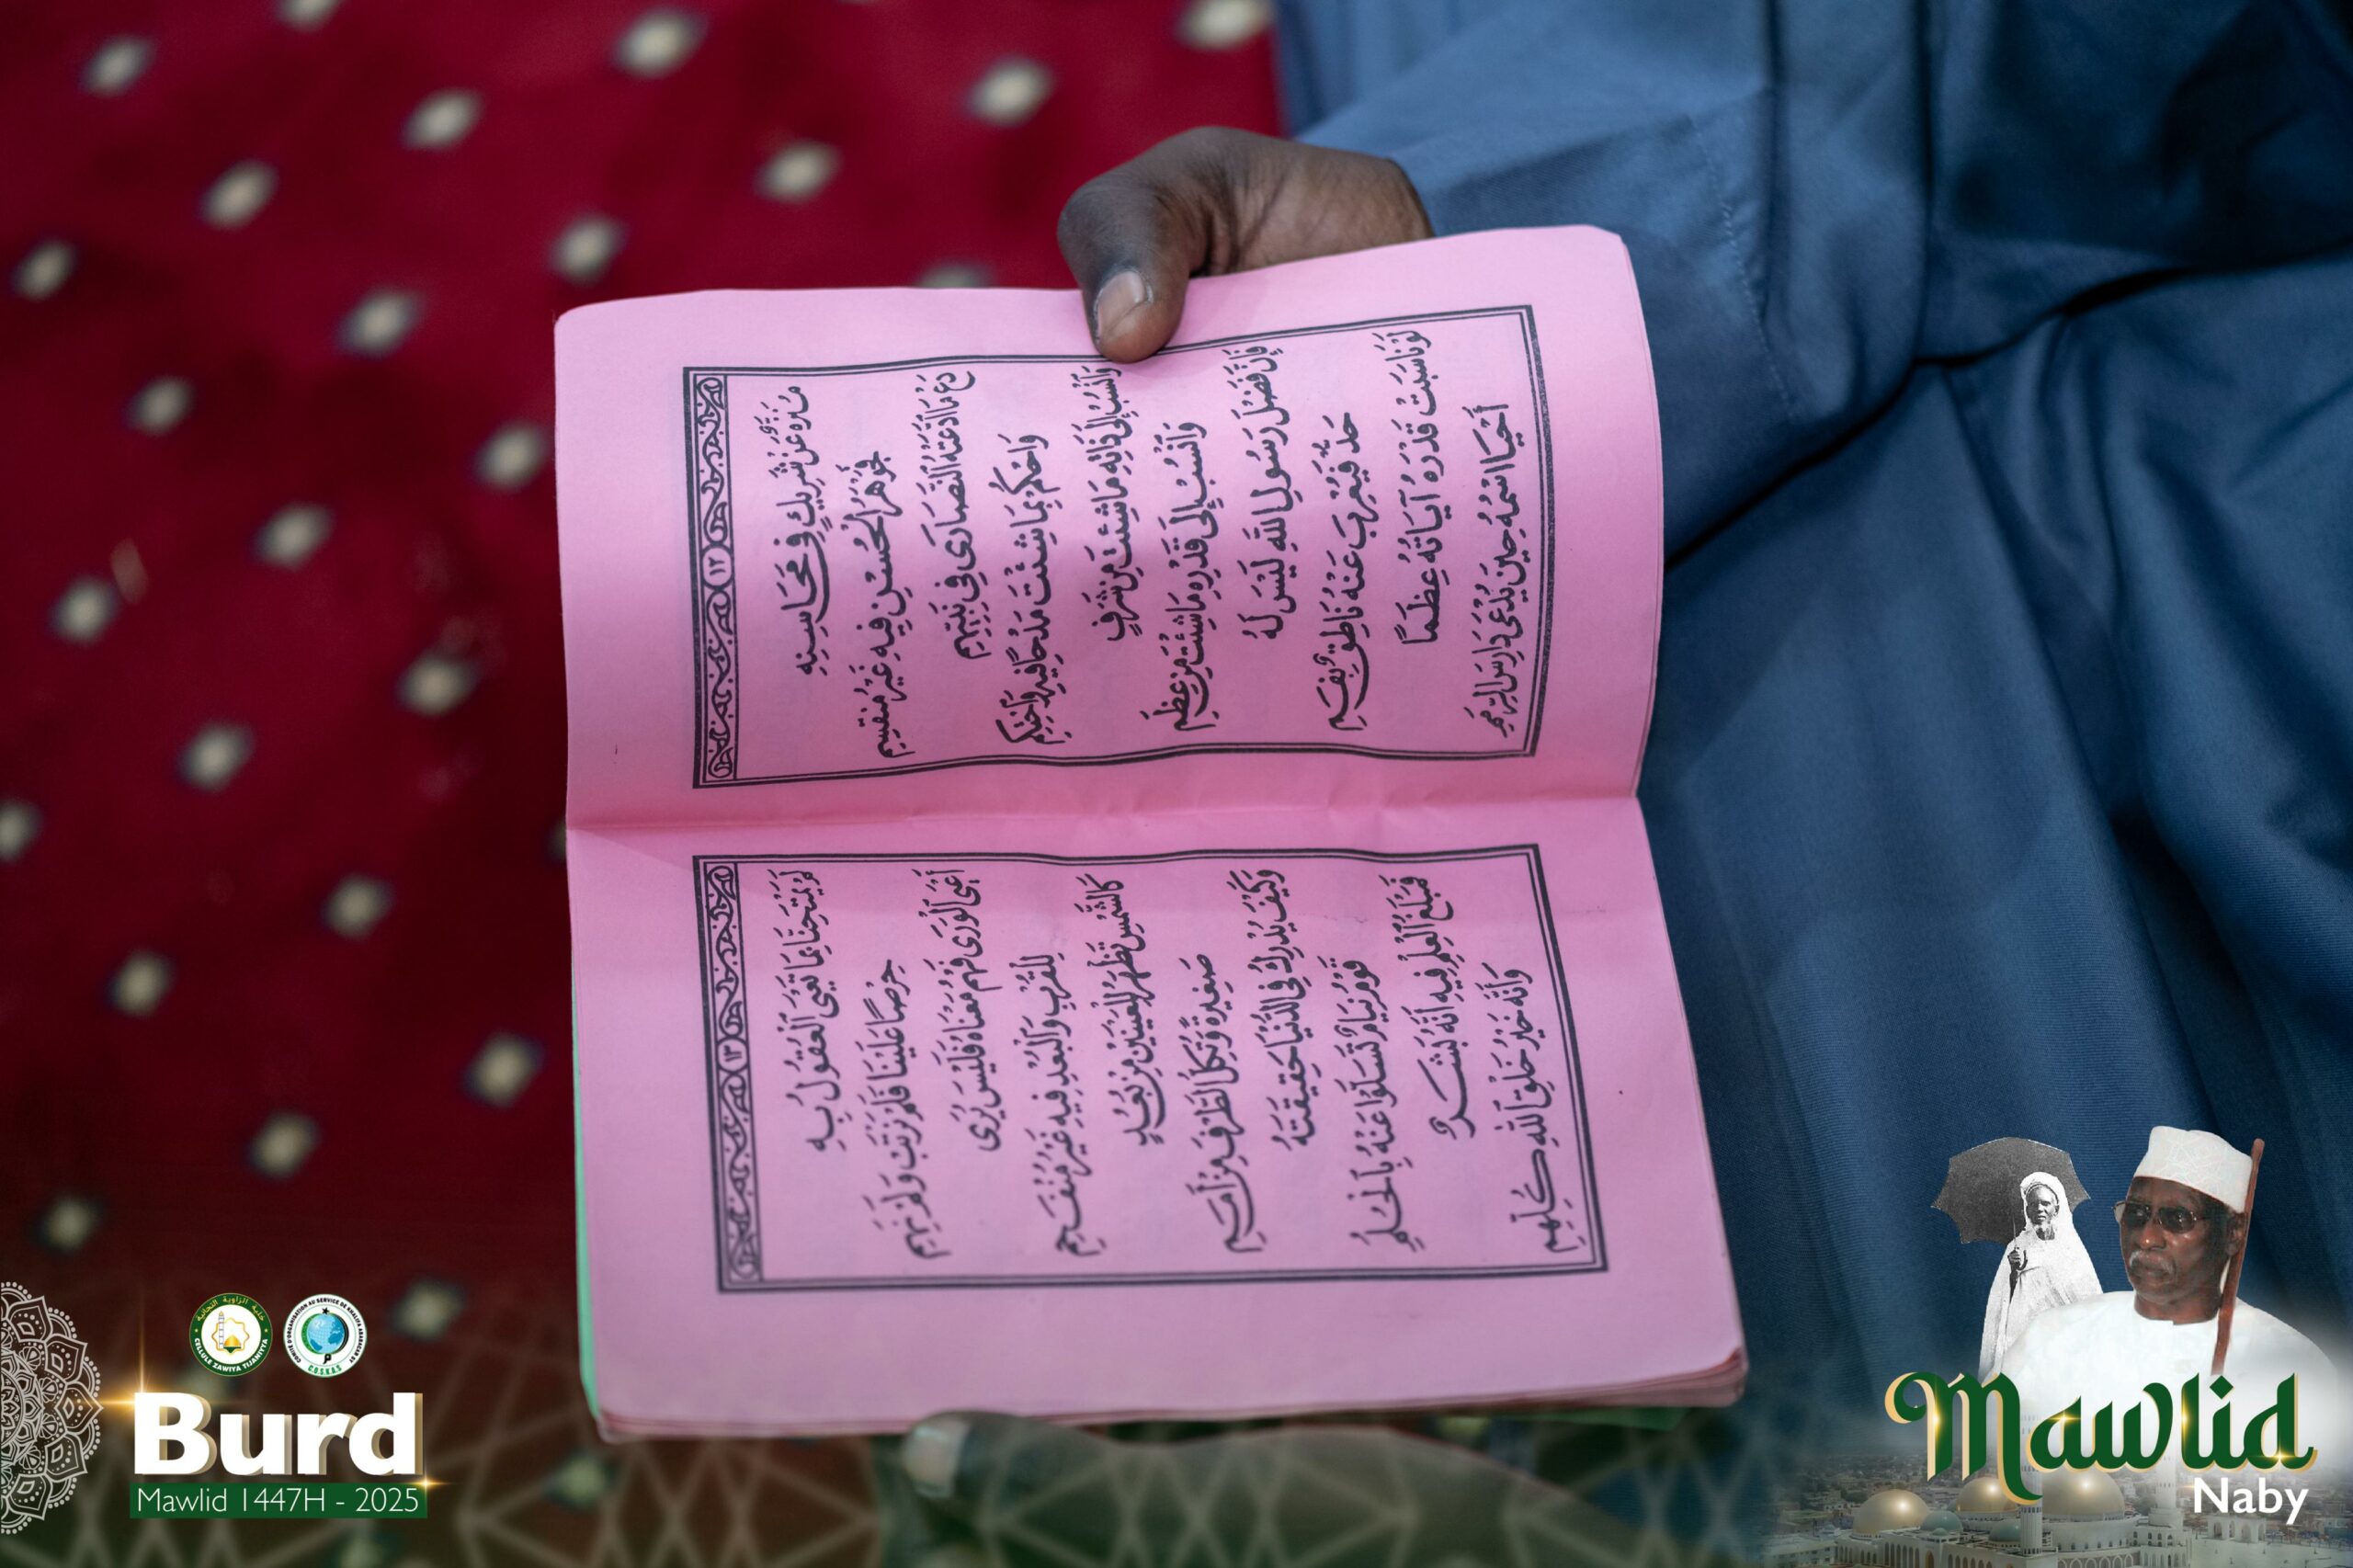 ١٢
مُنَزَّهٌ عَنْ شَرِيكٍ فِي مَحَاسِنِهِ
فَجَوْهَرُ الْحُسْنِ فِيهِ غَيْرُ مُنْقَسِمِ
دَعْ مَا ادَّعَتْهُ النَّصَارَى فِي نَبِيِّهِمِ
وَاحْكُمْ بِمَا شِئْتَ مَدْحًا فِيهِ وَاحْتَكِمِ
وَانْسُبْ إِلَى ذَاتِهِ مَا شِئْتَ مِنْ شَرَفٍ
وَانْسُبْ إِلَى قَدْرِهِ مَا شِئْتَ مِنْ عِظَمِ
فَإِنَّ فَضْلَ رَسُولِ اللهِ لَيْسَ لَهُ
حَدٌّ فَيُعْرِبَ عَنْهُ نَاطِقٌ بِفَمِ
لَوْ نَاسَبَتْ قَدْرَهُ آيَاتُهُ عِظَمًا
أَحْيَا اسْمُهُ حِينَ يُدْعَى دَارِسَ الرِّمَمِ
١٣
لَمْ يَمْتَحِنَّا بِمَا تَعْيَى الْعُقُولُ بِهِ
حِرْصًا عَلَيْنَا فَلَمْ نَرْتَبْ وَلَمْ نَهِمِ
أَعْيَى الْوَرَى فَهْمُ مَعْنَاهُ فَلَيْسَ يُرَى
لِلْقُرْبِ وَالْبُعْدِ فِيهِ غَيْرُ مُنْفَحِمِ
كَالشَّمْسِ تَظْهَرُ لِلْعَيْنَيْنِ مِنْ بُعُدٍ
صَغِيرَةً وَتُكِلُّ الطَّرْفَ مِنْ أَمَمِ
وَكَيْفَ يُدْرِكُ فِي الدُّنْيَا حَقِيقَتَهُ
قَوْمٌ نِيَامٌ تَسَلَّوْا عَنْهُ بِالْحُلُمِ
فَمَبْلَغُ الْعِلْمِ فِيهِ أَنَّهُ بَشَرٌ
وَأَنَّهُ خَيْرُ خَلْقِ اللهِ كُلِّهِمِ
خلية الزاوية التجانية
CELLULE ZAWIYA TIJANIYYA
COMITÉ D'ORGANISATION AU SERVICE DE KHALIFA ABABACAR SY
C.O.S.K.A.S
Burd
Mawlid 1447H - 2025
Mawlid
Naby